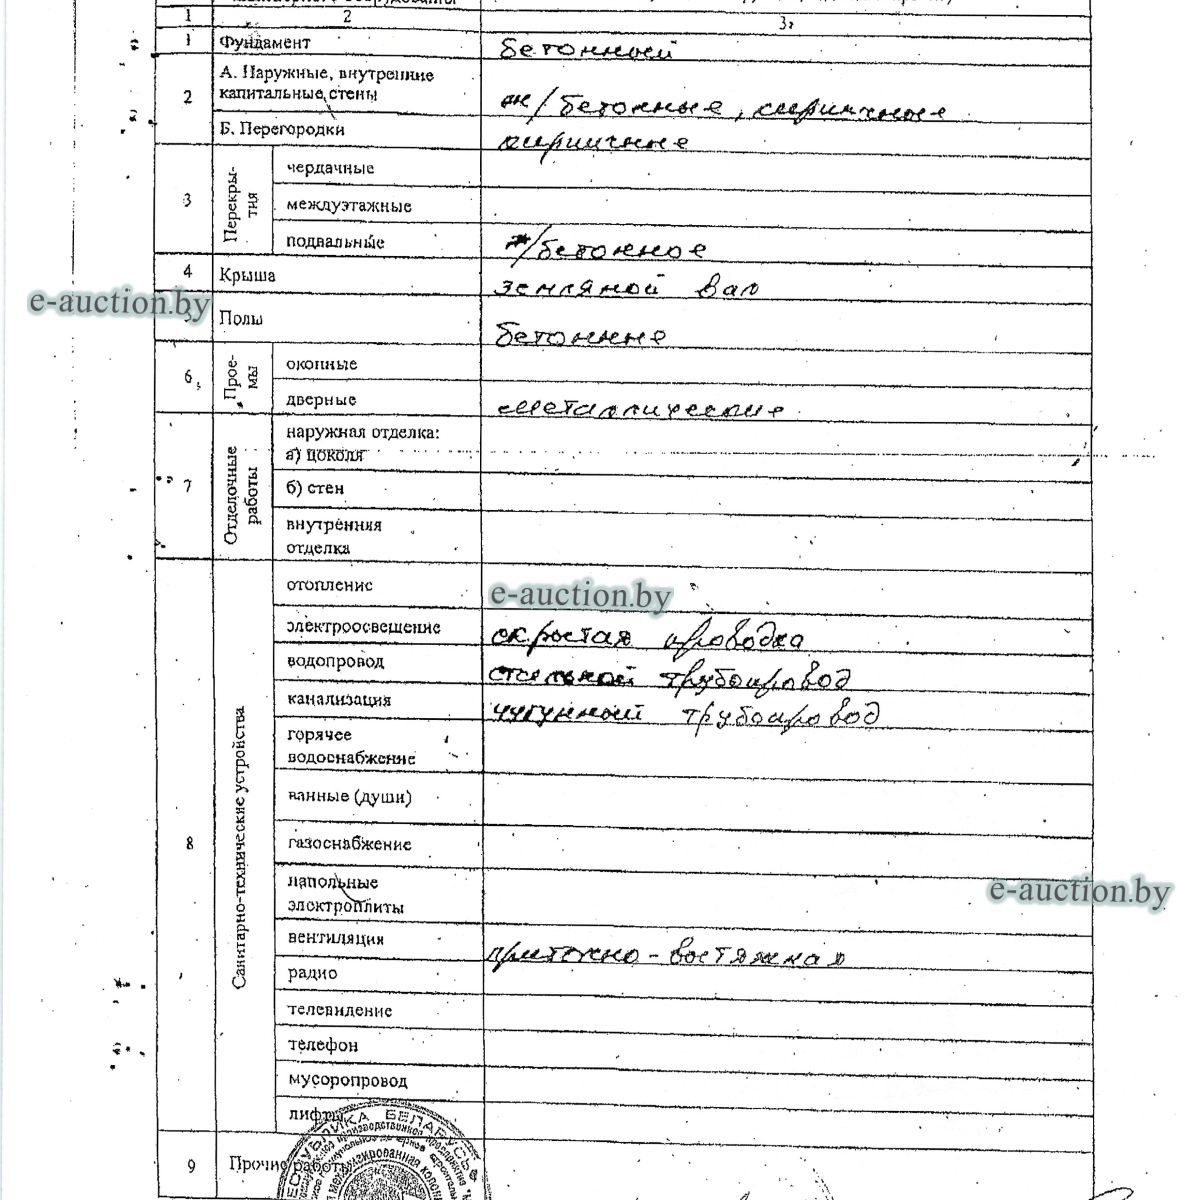 1 2 3
1 Фундамент бетонный
2 А. Наружные, внутренние
капитальные стены ж/бетонные, кирпичные
Б. Перегородки кирпичные
3 Перекры-
тия
чердачные
междуэтажные
подвальные ж/бетонное
4 Крыша земляной вал
e-auction.by
5 Полы бетонные
6 Прое-
мы
оконные
дверные металлические
7 Отделочные
работы
наружная отделка:
а) цоколя
б) стен
внутренняя
отделка
8 Санитарно-технические устройства
отопление
e-auction.by
электроосвещение скрытая проводка
водопровод стальной трубопровод
канализация чугунный трубопровод
горячее
водоснабжение
ванные (души)
газоснабжение
напольные
электроплиты
e-auction.by
вентиляция приточно-вытяжная
радио
телевидение
телефон
мусоропровод
лифты
9 Прочие работы
РЕСПУБЛИКА БЕЛАРУСЬ